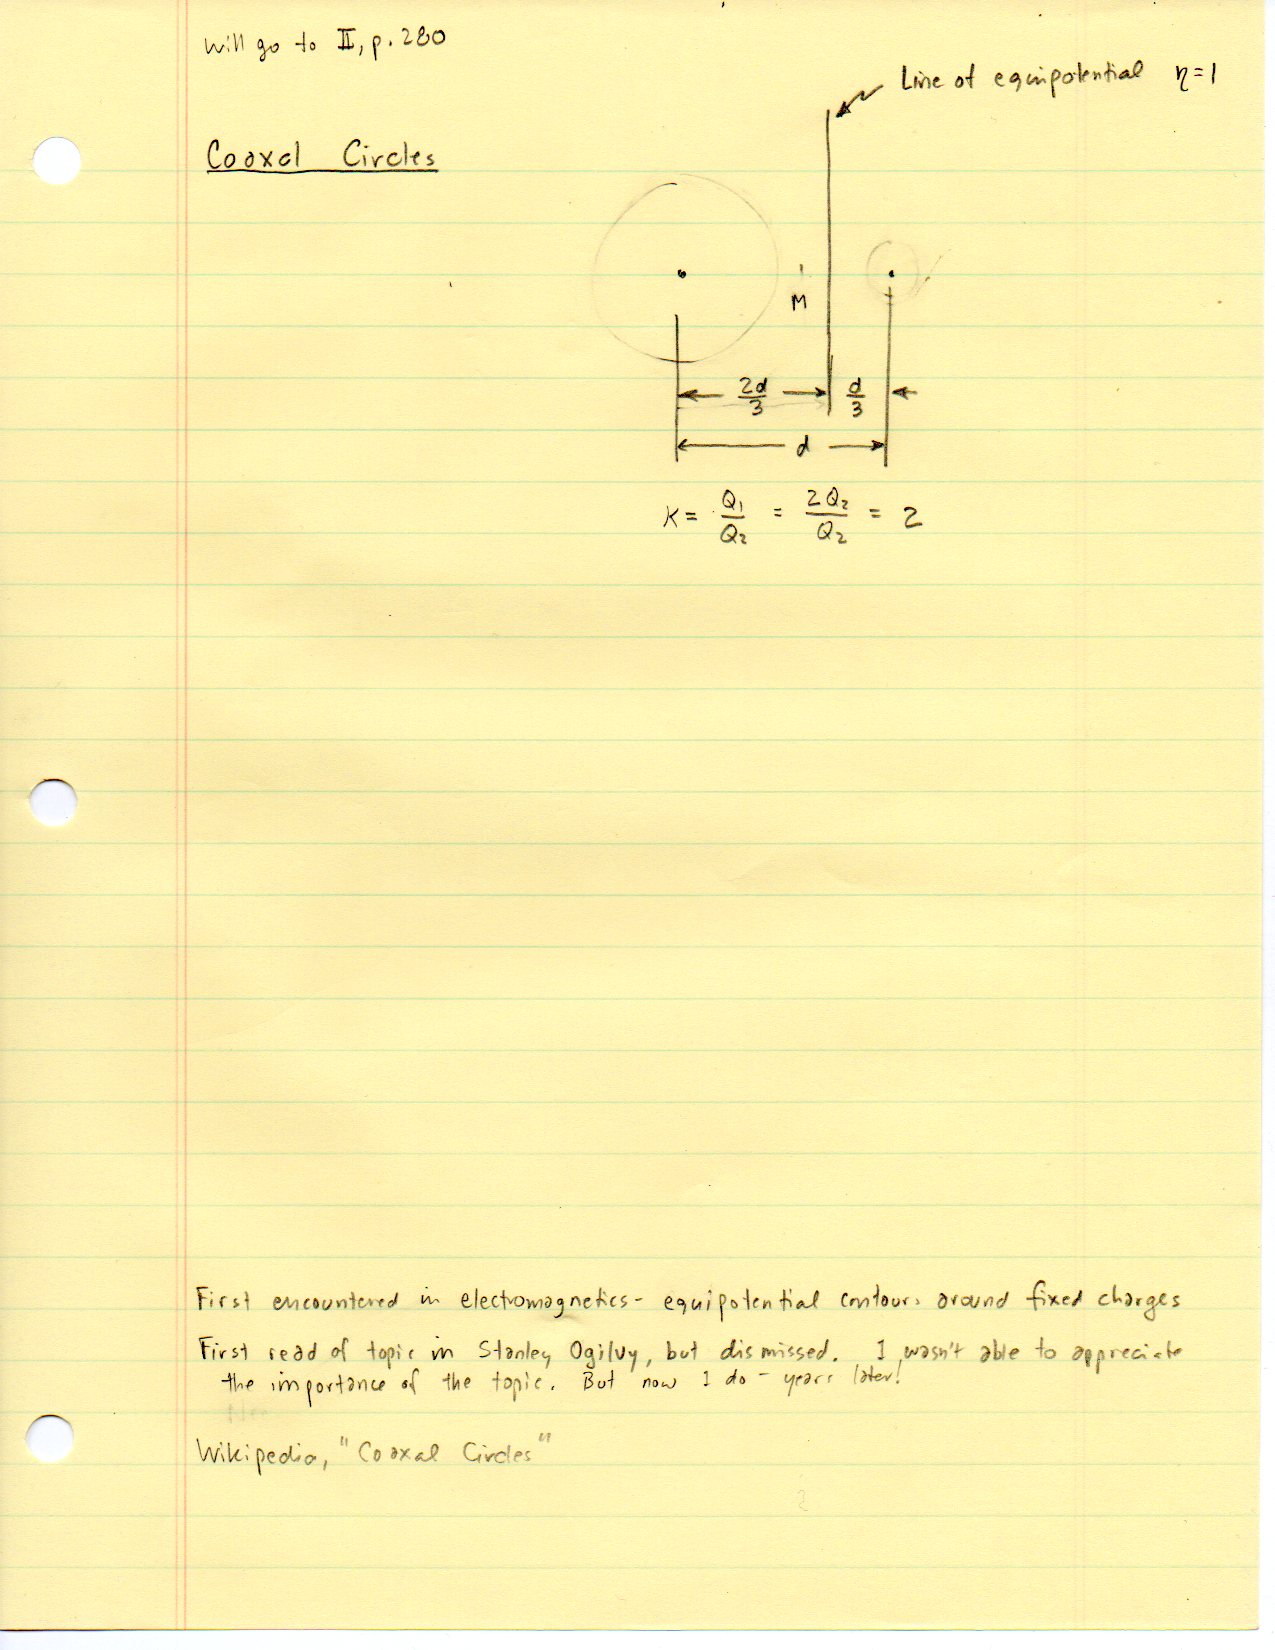 Will go to II, p. 280
Line of equipotential η=1
Coaxal Circles
M
2d/3 d/3
d
K = Q₁/Q₂ = 2Q₂/Q₂ = 2
First encountered in electromagnetics - equipotential contours around fixed charges
First read of topic in Stanley Ogilvy, but dismissed. I wasn't able to appreciate
the importance of the topic. But now I do - years later!
Wikipedia, "Coaxal Circles"